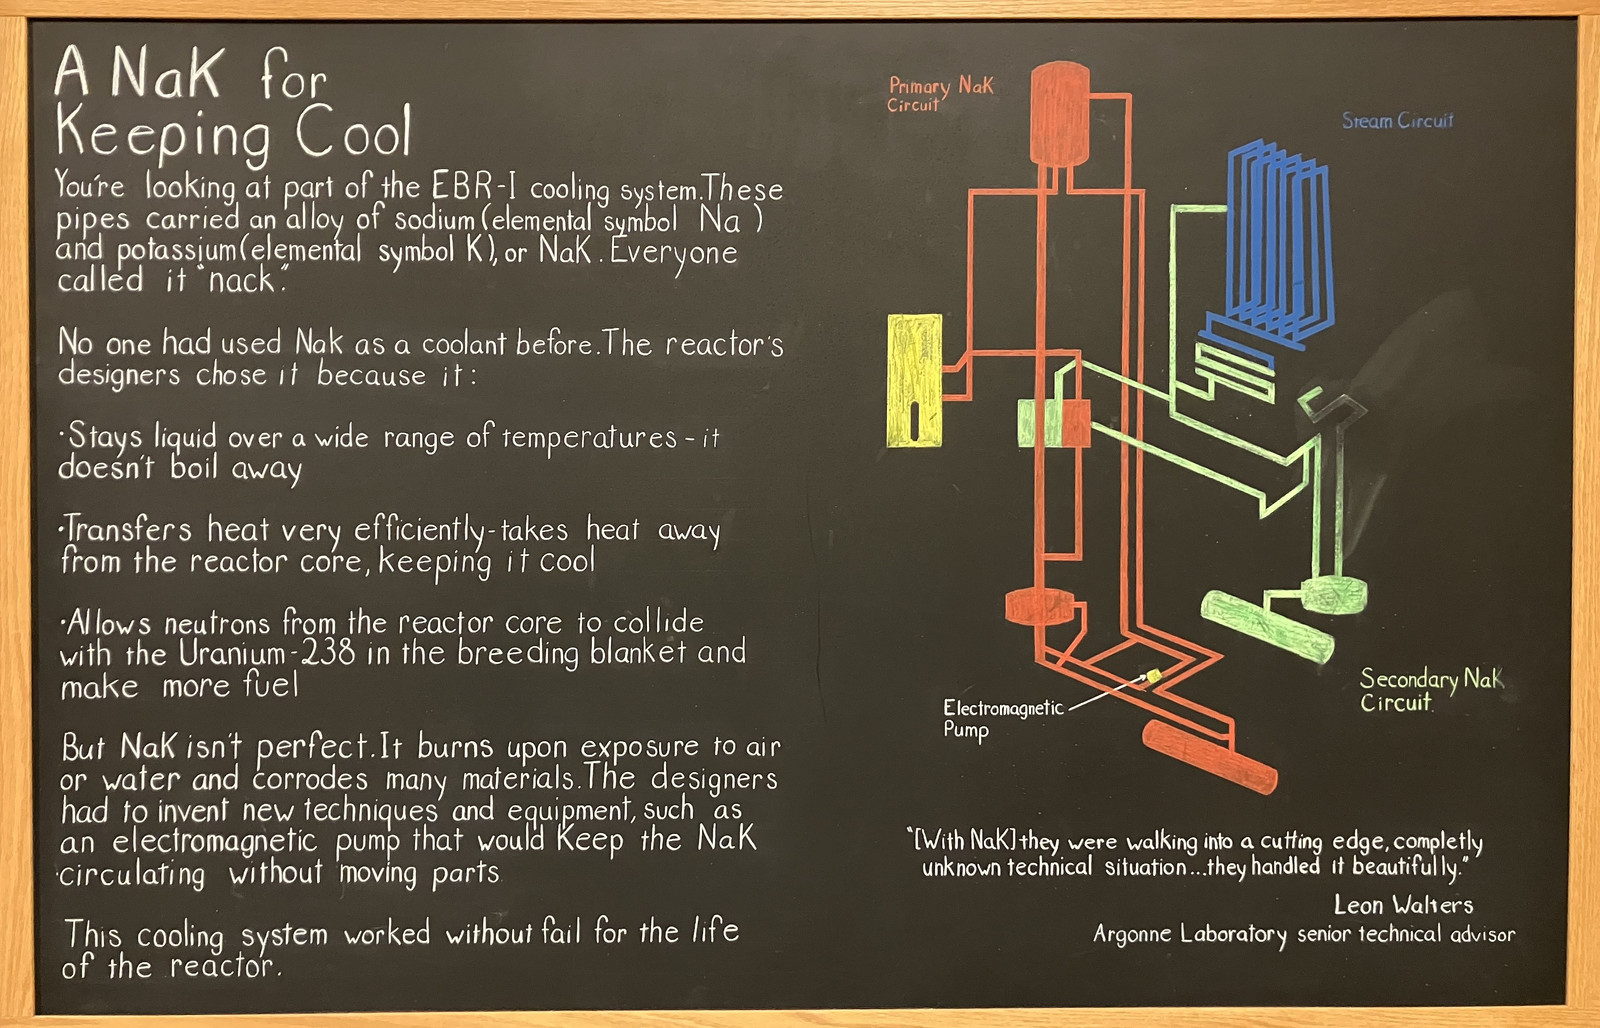 A NaK for
Keeping Cool
You're looking at part of the EBR-I cooling system.These
pipes carried an alloy of sodium (elemental symbol Na )
and potassium (elemental symbol K), or NaK. Everyone
called it "nack".
No one had used Nak as a coolant before. The reactor's
designers chose it because it:
·Stays liquid over a wide range of temperatures - it
doesn't boil away
·Transfers heat very efficiently-takes heat away
from the reactor core, keeping it cool
·Allows neutrons from the reactor core to collide
with the Uranium-238 in the breeding blanket and
make more fuel
But NaK isn't perfect. It burns upon exposure to air
or water and corrodes many materials. The designers
had to invent new techniques and equipment, such as
an electromagnetic pump that would Keep the NaK
circulating without moving parts
This cooling system worked without fail for the life
of the reactor.
Primary NaK
Circuit
Steam Circuit
Electromagnetic
Pump
Secondary NaK
Circuit.
"[With NaK] they were walking into a cutting edge, completly
unknown technical situation...they handled it beautifully."
Leon Walters
Argonne Laboratory senior technical advisor